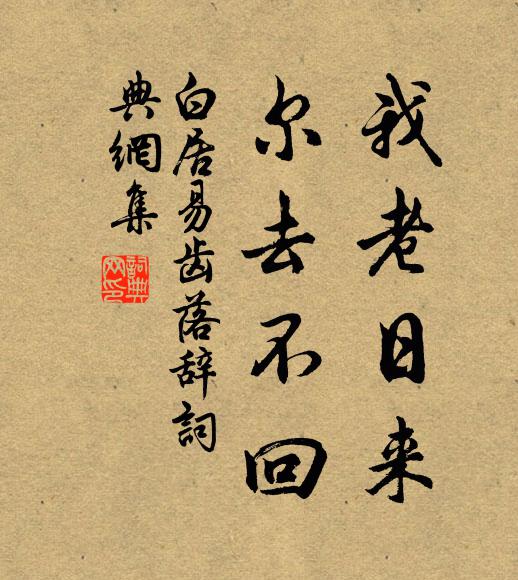 我老日来
尔去不回
白居易齿落辞詞
典網集
詞典
网印